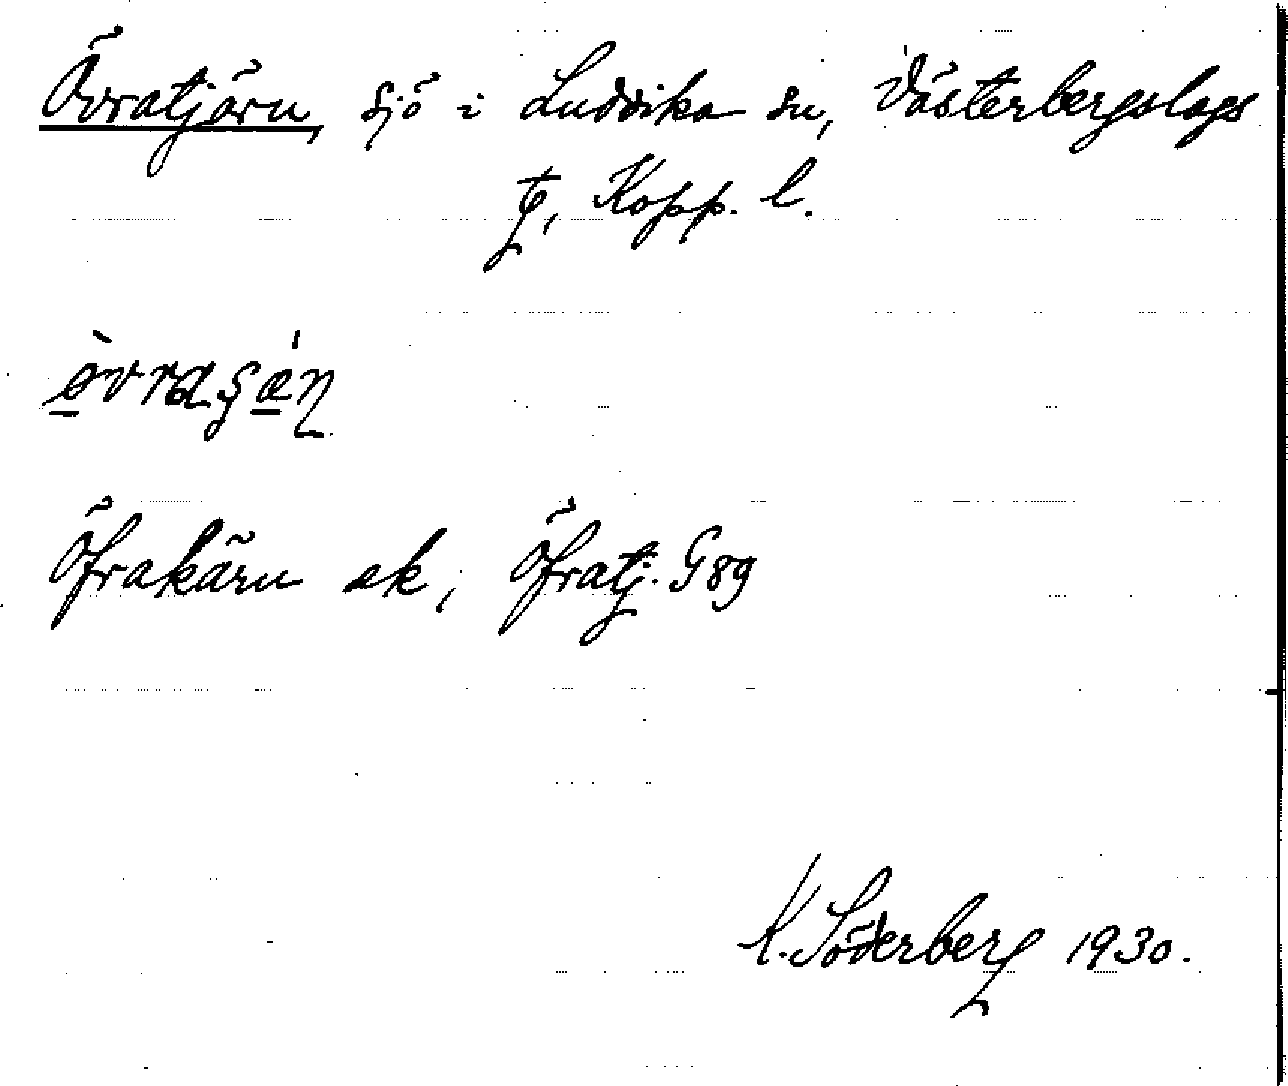 Övratjärn, sjö i Ludvika sn, Västerbergslags
tg, Kopp. l.
Öfrakärn ek, Öfratj. G89
K. Söderberg 1930.